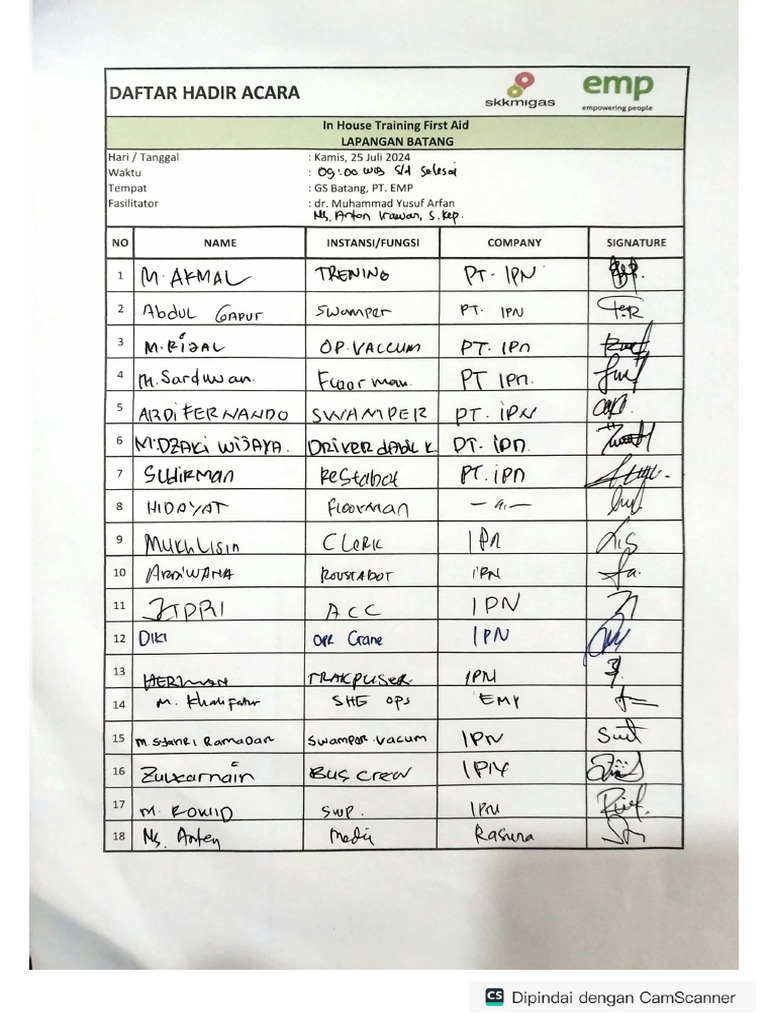 DAFTAR HADIR ACARA
skkmigas
emp
empowering people
In House Training First Aid
LAPANGAN BATANG
Hari / Tanggal : Kamis, 25 Juli 2024
Waktu : 09:00 WIB s/d Selesai
Tempat : GS Batang, PT. EMP
Fasilitator : dr. Muhammad Yusuf Arfan
Ns. Anton Irawan, S.Kep.
NO NAME INSTANSI/FUNGSI COMPANY SIGNATURE
1 M. AKMAL TRENING PT. IPN
2 Abdul GAPUR Swamper PT. IPN
3 M. RIJAL OP. VACCUM PT. IPN
4 M. Sarduwan. Floorman. PT IPN.
5 ARDI FERNANDO SWAMPER PT. IPN
6 M. DZAKI WIJAYA. DRIVER dabL K. PT. IPN.
7 SUDIRMAN ReStabot PT. IPN
8 HIDAYAT FLOORMAN
9 MUKHLISIN CLERIK IPN
10 ARDIWANA ROUSTABOT IPN
11 ACC IPN
12 DIKI OPR Crane IPN
13 HERMAN TRAKPUSER IPN
14 M. Khalifatur SHE OPS EMP
15 M. SYAHRI RAMADAN SWAMPER VACUM IPN
16 Zulkarnain BUS CREW IPN
17 M. ROWID SWP. IPN
18 Ns. Anton Medic Rasuna
CS Dipindai dengan CamScanner